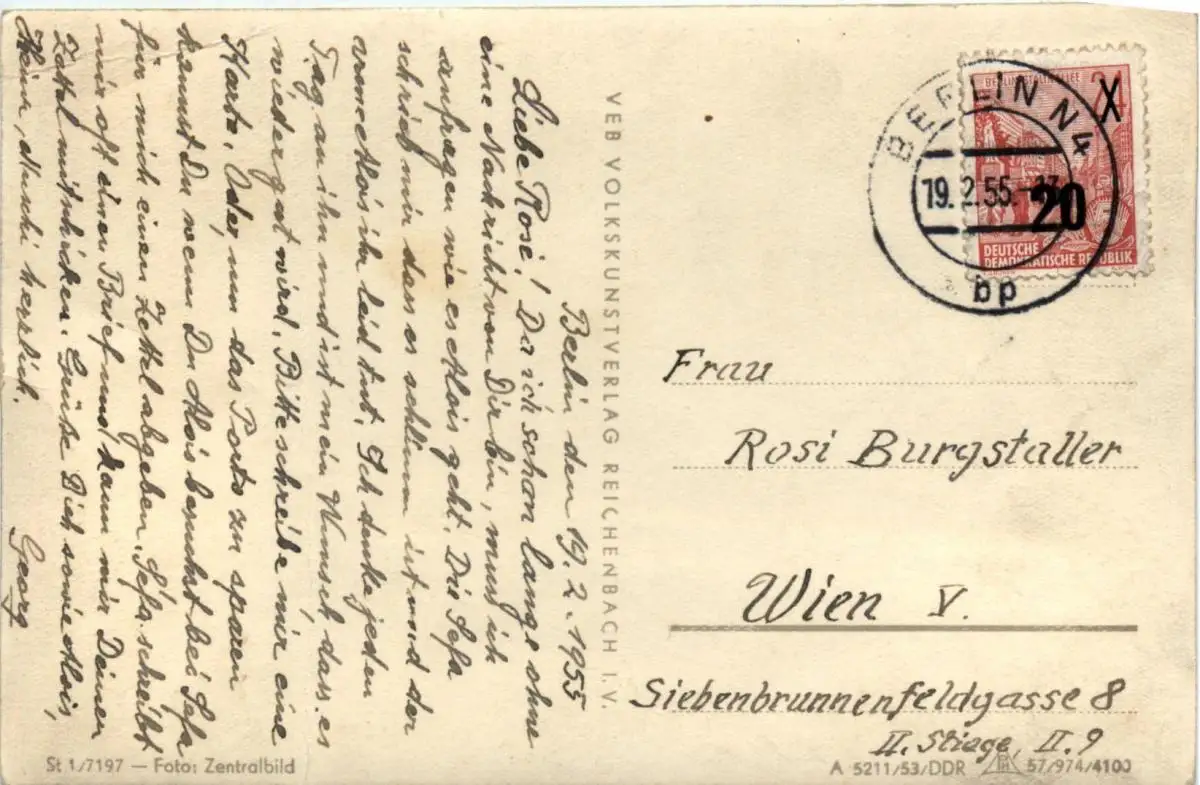 Berlin den 19.2.1955
Liebe Rosi! Da ich schon lange ohne
eine Nachricht von Dir bin, muss ich
anfragen wie es Alois geht. Die Sefa
schrieb mir dass es schlimm ist und der
arme Alois ihr leid tut. Ich denke jeden
Tag an ihn und ist mein Wunsch dass es
wieder gut wird. Bitte schreibe mir eine
Karte, Oder, um das Porto zu sparen
kannst Du wenn Du Alois besuchst bei Sefa
für mich einen Zettel abgeben. Sefa schreibt
mir oft einen Brief und kann mir Deinen
Zettel mitschicken. Grüße Dich sowie Alois,
Heini, Nushi herzlich.
Georg
VEB VOLKSKUNSTVERLAG REICHENBACH I. V.
BERLIN STALINALLEE
24
20
DEUTSCHE
DEMOKRATISCHE REPUBLIK
BERLIN N4
19.2.55.-17
bp
Frau
Rosi Burgstaller
Wien V.
Siebenbrunnenfeldgasse 8
II. Stiage, II. 9
St 1/7197 — Foto: Zentralbild
A 5211/53/DDR 57/974/4100